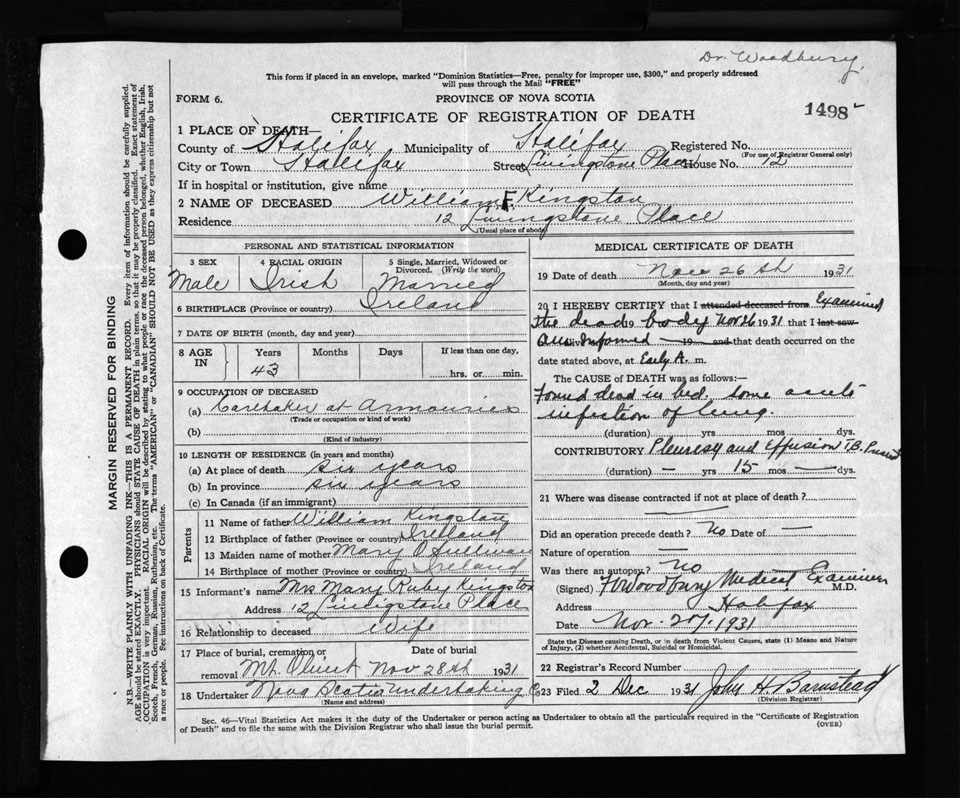 Dr. Woodbury.
This form if placed in an envelope, marked "Dominion Statistics—Free, penalty for improper use, $300," and properly addressed
will pass through the Mail "FREE"
FORM 6.
PROVINCE OF NOVA SCOTIA
CERTIFICATE OF REGISTRATION OF DEATH
1498
MARGIN RESERVED FOR BINDING
N.B.—WRITE PLAINLY WITH UNFADING INK—THIS IS A PERMANENT RECORD. Every item of information should be carefully supplied.
AGE should be stated EXACTLY. PHYSICIANS should STATE CAUSE OF DEATH in plain terms, so that it may be properly classified. Exact statement of
OCCUPATION is very important. RACIAL ORIGIN will be described by stating to what people or race the deceased person belonged, whether English, Irish,
Scotch, French, German, Russian, Ruthenian, etc. The terms "AMERICAN" or "CANADIAN" SHOULD NOT BE USED as they express citizenship but not
a race or people. See instructions on back of Certificate.
1 PLACE OF DEATH—
County of Halifax Municipality of Halifax Registered No.
(For use of Registrar General only)
City or Town Halifax Street Livingstone Place House No. 12
If in hospital or institution, give name
2 NAME OF DECEASED William F. Kingston
Residence 12 Livingstone Place
(Usual place of abode)
PERSONAL AND STATISTICAL INFORMATION
3 SEX
Male
4 RACIAL ORIGIN
Irish
5 Single, Married, Widowed or
Divorced. (Write the word)
Married
6 BIRTHPLACE (Province or country) Ireland
7 DATE OF BIRTH (month, day and year)
8 AGE IN
Years Months Days If less than one day,
43 hrs. or min.
9 OCCUPATION OF DECEASED
(a) Caretaker at Armouries
(Trade or occupation or kind of work)
(b)
(Kind of industry)
10 LENGTH OF RESIDENCE (in years and months)
(a) At place of death six years
(b) In province six years
(c) In Canada (if an immigrant)
Parents
11 Name of father William Kingston
12 Birthplace of father (Province or country) Ireland
13 Maiden name of mother Mary O Sullivan
14 Birthplace of mother (Province or country) Ireland
15 Informant's name Mrs Mary Ruby Kingston
Address 12 Livingstone Place
16 Relationship to deceased Wife
17 Place of burial, cremation or removal Date of burial
Mt. Olivet Nov 28th 1931
18 Undertaker Nova Scotia Undertaking Co
(Name and address)
MEDICAL CERTIFICATE OF DEATH
19 Date of death Nov 26th 1931
(Month, day and year)
20 I HEREBY CERTIFY that I attended deceased from Examined
the dead 19 body Nov 26 1931 that I last saw
alive on 19 and that death occurred on the
date stated above, at Early A. m.
The CAUSE OF DEATH was as follows:
Found dead in bed, some acute
infection of lung.
(duration) yrs mos dys.
CONTRIBUTORY Pleuresy and Effusion TB.
(duration) — yrs 15 mos — dys.
21 Where was disease contracted if not at place of death?
Did an operation precede death? No Date of —
Nature of operation —
Was there an autopsy? No
(Signed) Woodbury Medical Examiner M.D.
Address Halifax
Date Nov. 27/1931
State the Disease causing Death, or in death from Violent Causes, state (1) Means and Nature
of Injury, (2) whether Accidental, Suicidal or Homicidal.
22 Registrar's Record Number
23 Filed 2 Dec 1931 John H. Barnstead
(Division Registrar)
Sec. 46—Vital Statistics Act makes it the duty of the Undertaker or person acting as Undertaker to obtain all the particulars required in the "Certificate of Registration
of Death" and to file the same with the Division Registrar who shall issue the burial permit.
(OVER)